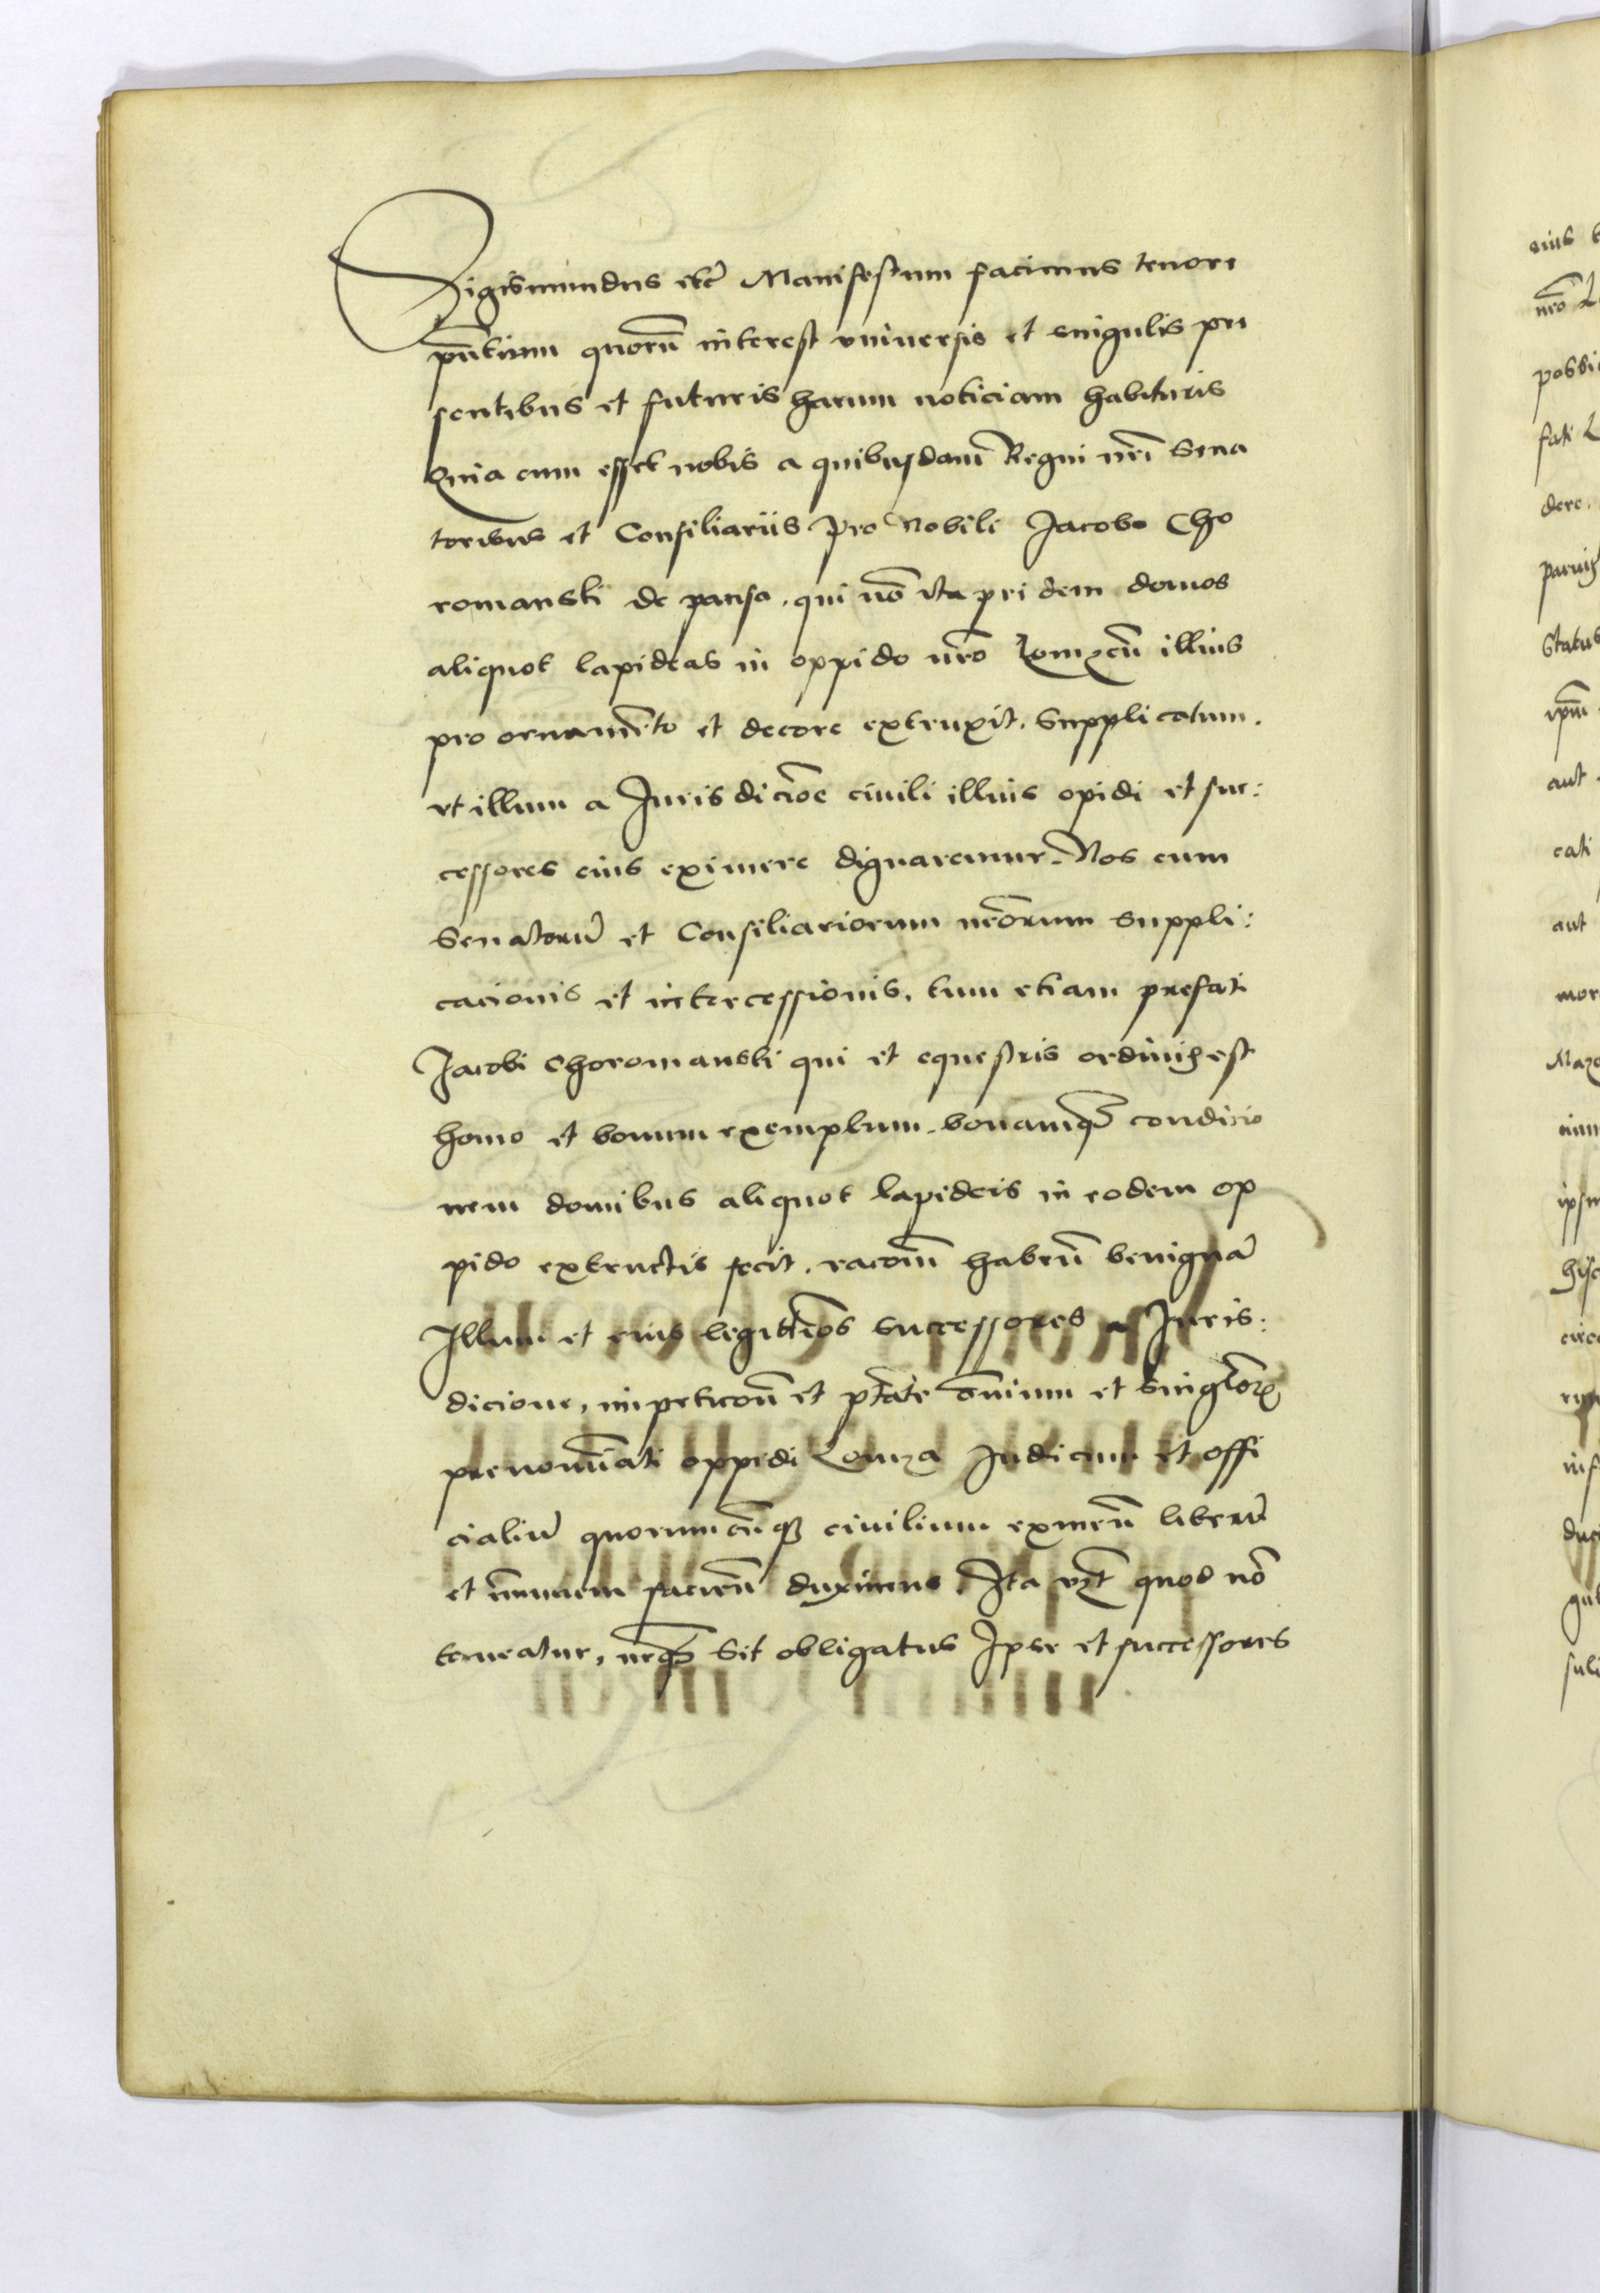 Sigismundus etc̃ Manifestum facimus tenore
pñtium quorũ interest vniversis et singulis pre
sentibus et futuris harum noticiam habituris
Quia cum esset nobis a quibusdam Regni nr̃i Sena
toribus et Consiliariis pro Nobili Jacobo Cho
romanski de pansa, qui nõ ita pridem domos
aliquot lapideas in oppido nr̃o illius
pro ornamẽto et decore extruxit. Supplicatum.
vt illum a Jurisdicõe ciuili illius opidi et suc:
cessores eius eximere dignaremur. Nos cum
Senatorũ et Consiliariorum nr̃orum suppli:
cacionis et intercessionis, tum etiam prefati
Jacobi Choromanski qui et equestris ordinis est
homo et bonum exemplum, bonamq̃ condicio
nem domibus aliquot lapideis in eodem op
pido extructis fecit, racõm habeñ benignã
Illum et eius legittĩos successores a Juris:
dicione, impeticoñ et ptãte õnium et singl̃orꝝ
prenomĩati oppidi Lomza Judicum et offi
cialiũ quorumcũqꝫ ciuilium eximeñ liberũ
et ĩmunem facieñ duximus, Ita vt̃ quod nõ
teneatur, neqꝫ sit obligatus Ipse et successores
eius
nr̃o
fati
dere.
Status
ipm̃
aut
cati
aut